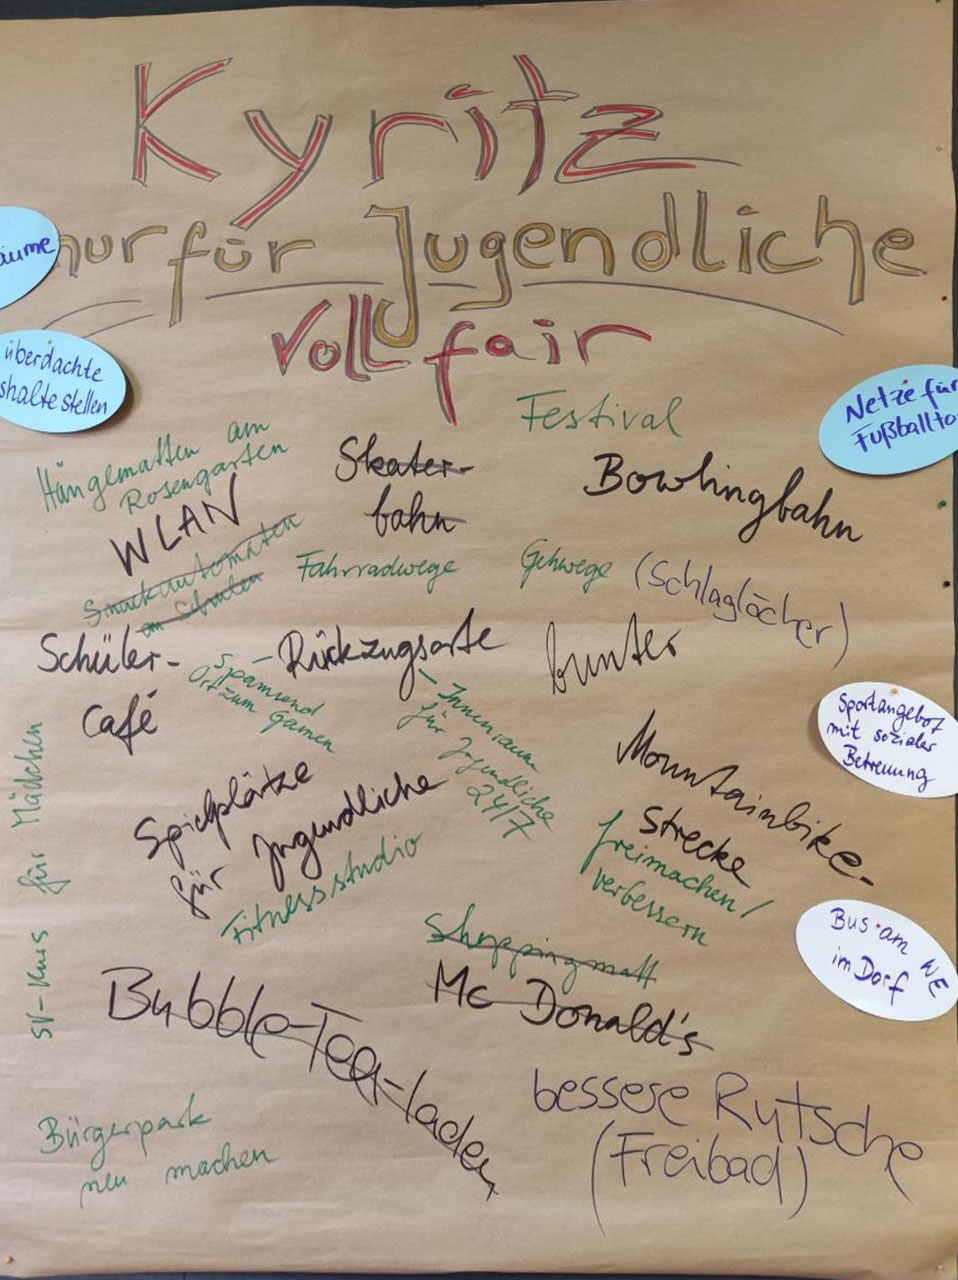 Kyritz
nur für Jugendliche
voll fair
überdachte
Netze für
Festival
Hängematten am
Rosengarten
WLAN
Skater-
bahn
Bowlingbahn
Snackautomaten
an Schulen
Fahrradwege
Gehwege (Schlaglöcher)
Schüler-
Café
- Rückzugsorte
spannend
Ort zum Gamen
- Innenraum
für Jugendliche
24/7
bunter
Sportangebot
mit sozialer
Betreuung
Spielplätze
für Jugendliche
Mountainbike-
Strecke
freimachen/
verbessern
Fitnessstudio
SV-Kurs für Mädchen
Shoppingmall
Mc Donald's
Bus am WE
im Dorf
Bubble-Tea-laden
bessere Rutsche
(Freibad)
Bürgerpark
neu machen